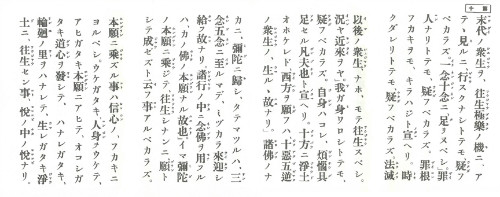 末代ノ衆生ヲ、往生極樂ノ機ニ、ア
テヽ見ルニ、行スクナシトテモ、疑フ
ベカラズ。一念十念ニ足リヌベシ。罪
人ナリトテモ、疑フベカラズ。罪根
フカキヲモ、キラハジト宣ヘリ。時
クダレリトテモ、疑フベカラズ。法滅
以後ノ衆生、ナホ、モテ往生スベシ。
況ヤ近來ヲヤ、我ガ身ワロシトテモ、
疑フベカラズ。自身ハコレ、煩惱具
足セル凡夫也ト宣ヘリ。十方ニ淨土
オホケレド、西方ヲ願フハ、十惡五逆
ノ衆生ノ、生ルヽ故ナリ。諸佛ノナ
カニ、彌陀ニ歸シ、タテマツルハ、三
念五念ニ至ルマデ、ミヅカラ來迎シ
給フ故ナリ。諸行ノ中ニ念佛ヲ用フル
ハ、カノ佛ノ本願ナル故也。イマ彌陀
ノ本願ニ乘ジテ、往生シナンニ、願ト
シテ成ゼズト云フ事アルベカラズ。
本願ニ乘ズル事ハ信心ノ、フカキニ
ヨルベシ。ウケガタキ人身ヲウケテ、
アヒガタキ本願ニアヒテ、オコシガ
タキ道心ヲ發シテ、ハナレガタキ、
輪廻ノ里ヲ、ハナレテ、生レガタキ淨
土ニ、往生セン事、悅ノ中ノ悅ナリ、